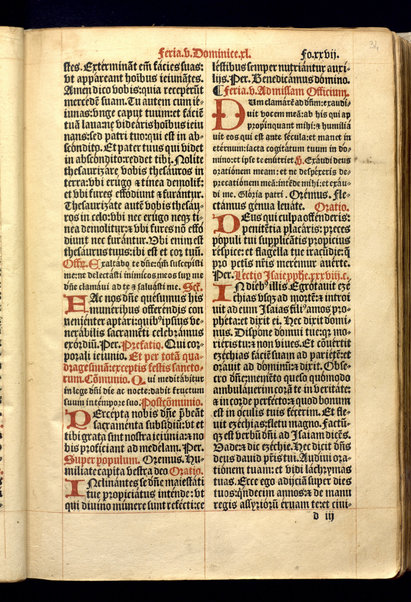 Feria.v. Dominice.xl. Fo.xxvij.
34
stes. Extermināt em̄ facies suas:
vt appareant hoībus ieiunātes.
Amen dico vobis: quia receperūt
mercedē suam. Tu autem cum ie-
iunas: vnge caput tuum: et faciē
tuā laua: ne videaris hoībus ieiu
nans: sed patri tuo: qui est in ab-
scōdito. Et pater tuus qui videt
in abscōdito: reddet tibi. Nolite
thesaurizare vobis thesauros in
terra: vbi erugo ⁊ tinea demolit̄:
et vbi fures effodiunt ⁊ furantur.
Thesaurizate autē vobis thesau
ros in celo: vbi nec erugo neqȝ ti
nea demolitur: ⁊ vbi fures nō effo
diunt nec furantur. Vbi enim est
thesaurus tuus: ibi est et cor tuū.
Offer. Exaltabo te dn̄e: qm̄ suscepisti
me: nec delectasti inimicos meos suꝑ me
dn̄e clamaui ad te ⁊ sanasti me. Sec̄.
HAc nos dn̄e quesumus his
muneribus offerendis con
uenienter aptari: quibꝰ ipsius ve-
nerabilis sacramēti celebramus
exordiū. Per. Prefatio. Qui cor-
porali ieiunio. Et per totā qua-
dragesimā: exceptis festis sancto-
rum. Cōmunio. Qui meditabitur
in lege dn̄i die ac nocte: dabit fructum
suum in tempore suo. Postcōmunio.
PErcepta nobis dn̄e p̄beāt
sacramenta subsidiū: vt et
tibi grata sint nostra ieiunia: ⁊ no
bis proficiant ad medelam. Per.
Super populum. Oremus. Hu-
miliate capita vestra deo Oratio.
INclinantes se dn̄e maiestati
tue propiciatus intende: vt
qui diuino munere sunt refecti: ce
lestibus semper nutriantur auxi-
lijs. Per. Benedicamus domino.
Feria.v. Ad missam Officium.
DUm clamarē ad dn̄m: exaudi-
uit vocem meā: ab his qui ap
propinquant mihi: ⁊ humilia
uit eos qui est ante secula: et manet in
eternum: iacta cogitatum tuum in do-
mino: et ipse te enutriet. ps. Exaudi deus
orationem meam: et ne despexeris de-
precationem meā: intēde mihi: et exau-
di me. Gloria patri. Oremus. Fle-
ctamus genua leuate. Oratio.
DEus qui culpa offenderis:
penitētia placaris: preces
populi tui supplicātis propicius
respice: et flagella tue iracūdie: q̄
pro pctīs nr̄is meremur auerte.
Per. Lectio Isaie ꝓphe. xxxviij.c.
IN dieb⁹ illis Egrotauit eze
chias vsqȝ ad mortē: ⁊ introi
uit ad eum Isaias fili⁹ amos pro-
pheta: et dixit ei. Hec dicit domi-
nus. Dispone domui tue: qȝ mo-
rieris tu: ⁊ non viues. Et cōuertit
ezechias faciē suam ad parietē: et
orauit ad dominū: ⁊ dixit. Obse-
cro dn̄e: memēto queso quō modo
ambulauerim corā te in veritate:
⁊ in corde perfecto: ⁊ quod bonum
est in oculis tuis fecerim. Et fle-
uit ezechias: fletu magno. Factū-
qȝ est verbū dn̄i ad Isaiam dicēs.
Vade: ⁊ dic ezechie. Hec dicit dn̄s
deus dauid p̄ris tui. Audiui ora-
tionem tuam: et vidi lachrymas
tuas. Ecce ego adijciā super dies
tuos: q̄ndecim annos: ⁊ de manu
regis assyriorū eruam te: et ciui-
d iij